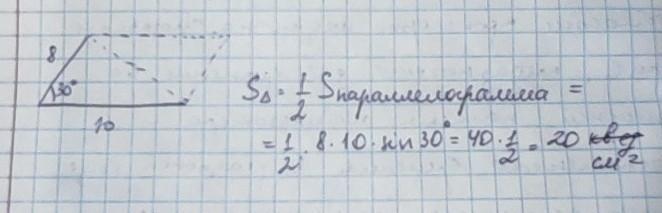 8
30°
10
S△ = 1/2 Sпараллелограмма =
= 1/2 · 8 · 10 · sin 30° = 40 · 1/2 = 20 кв ед
см²